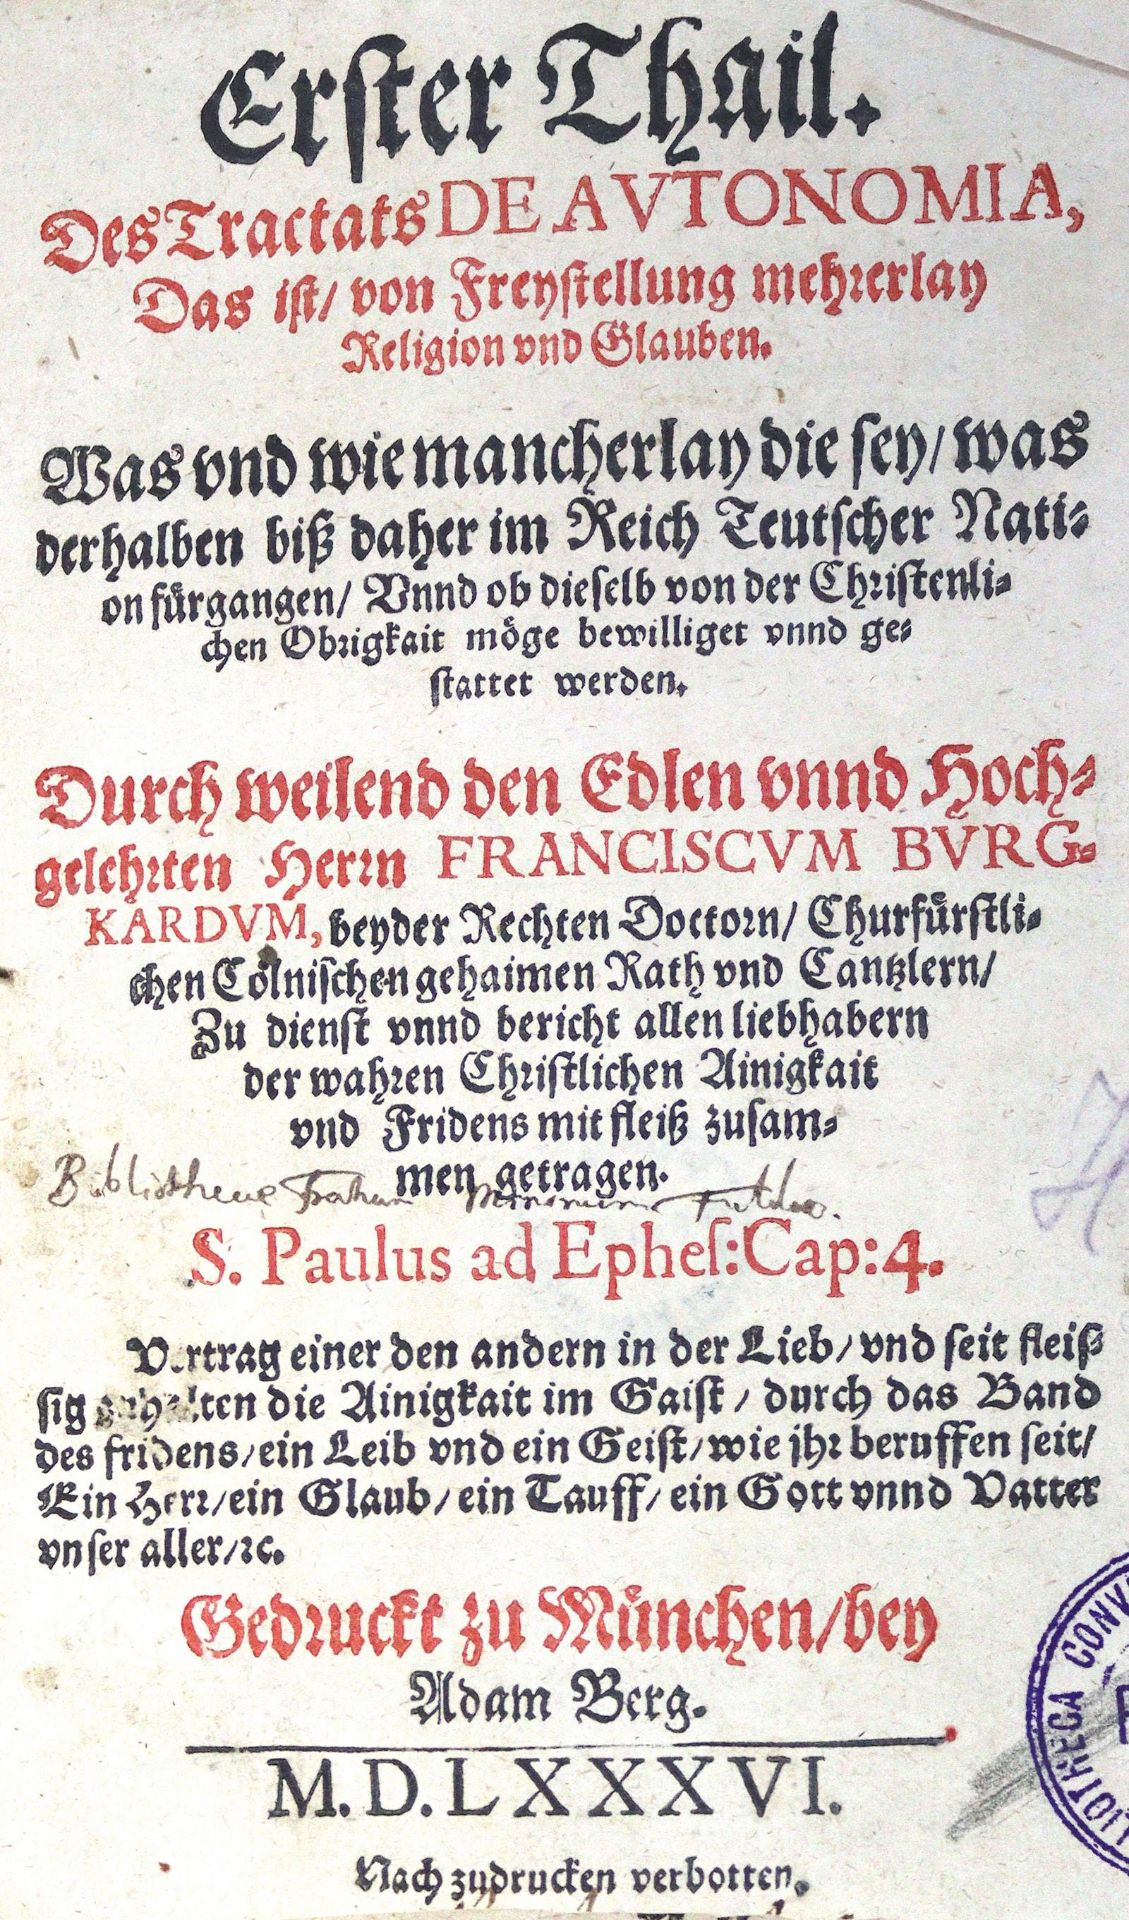 Erster Thail.
Des Tractats DE AVTONOMIA,
Das ist/ von Freystellung mehrerlay
Religion vnd Glauben.
Was vnd wie mancherlay die sey/ was
derhalben biß daher im Reich Teutscher Nati-
on fürgangen/ Vnnd ob dieselb von der Christenli-
chen Obrigkait möge bewilliget vnnd ge-
stattet werden.
Durch weilend den Edlen vnnd Hoch-
gelehrten Herrn FRANCISCVM BVRG-
KARDVM, beyder Rechten Doctorn/ Churfürstli-
chen Cölnischen gehaimen Rath vnd Cantzlern/
Zu dienst vnnd bericht allen liebhabern
der wahren Christlichen Ainigkait
vnd Fridens mit fleiß zusam-
men getragen.
Bibliothecae Fratrum Minorum Fuldae.
S. Paulus ad Ephes: Cap: 4.
Vertrag einer den andern in der Lieb/ vnd seit fleis-
sig die Ainigkait im Gaist/ durch das Band
des fridens/ ein Leib vnd ein Geist/ wie jhr beruffen seit/
Ein Herr/ ein Glaub/ ein Tauff/ ein Gott vnnd Vatter
vnser aller/ ꝛc.
Gedruckt zu München/ bey
Adam Berg.
M.D.LXXXVI.
Nach zudrucken verbotten.